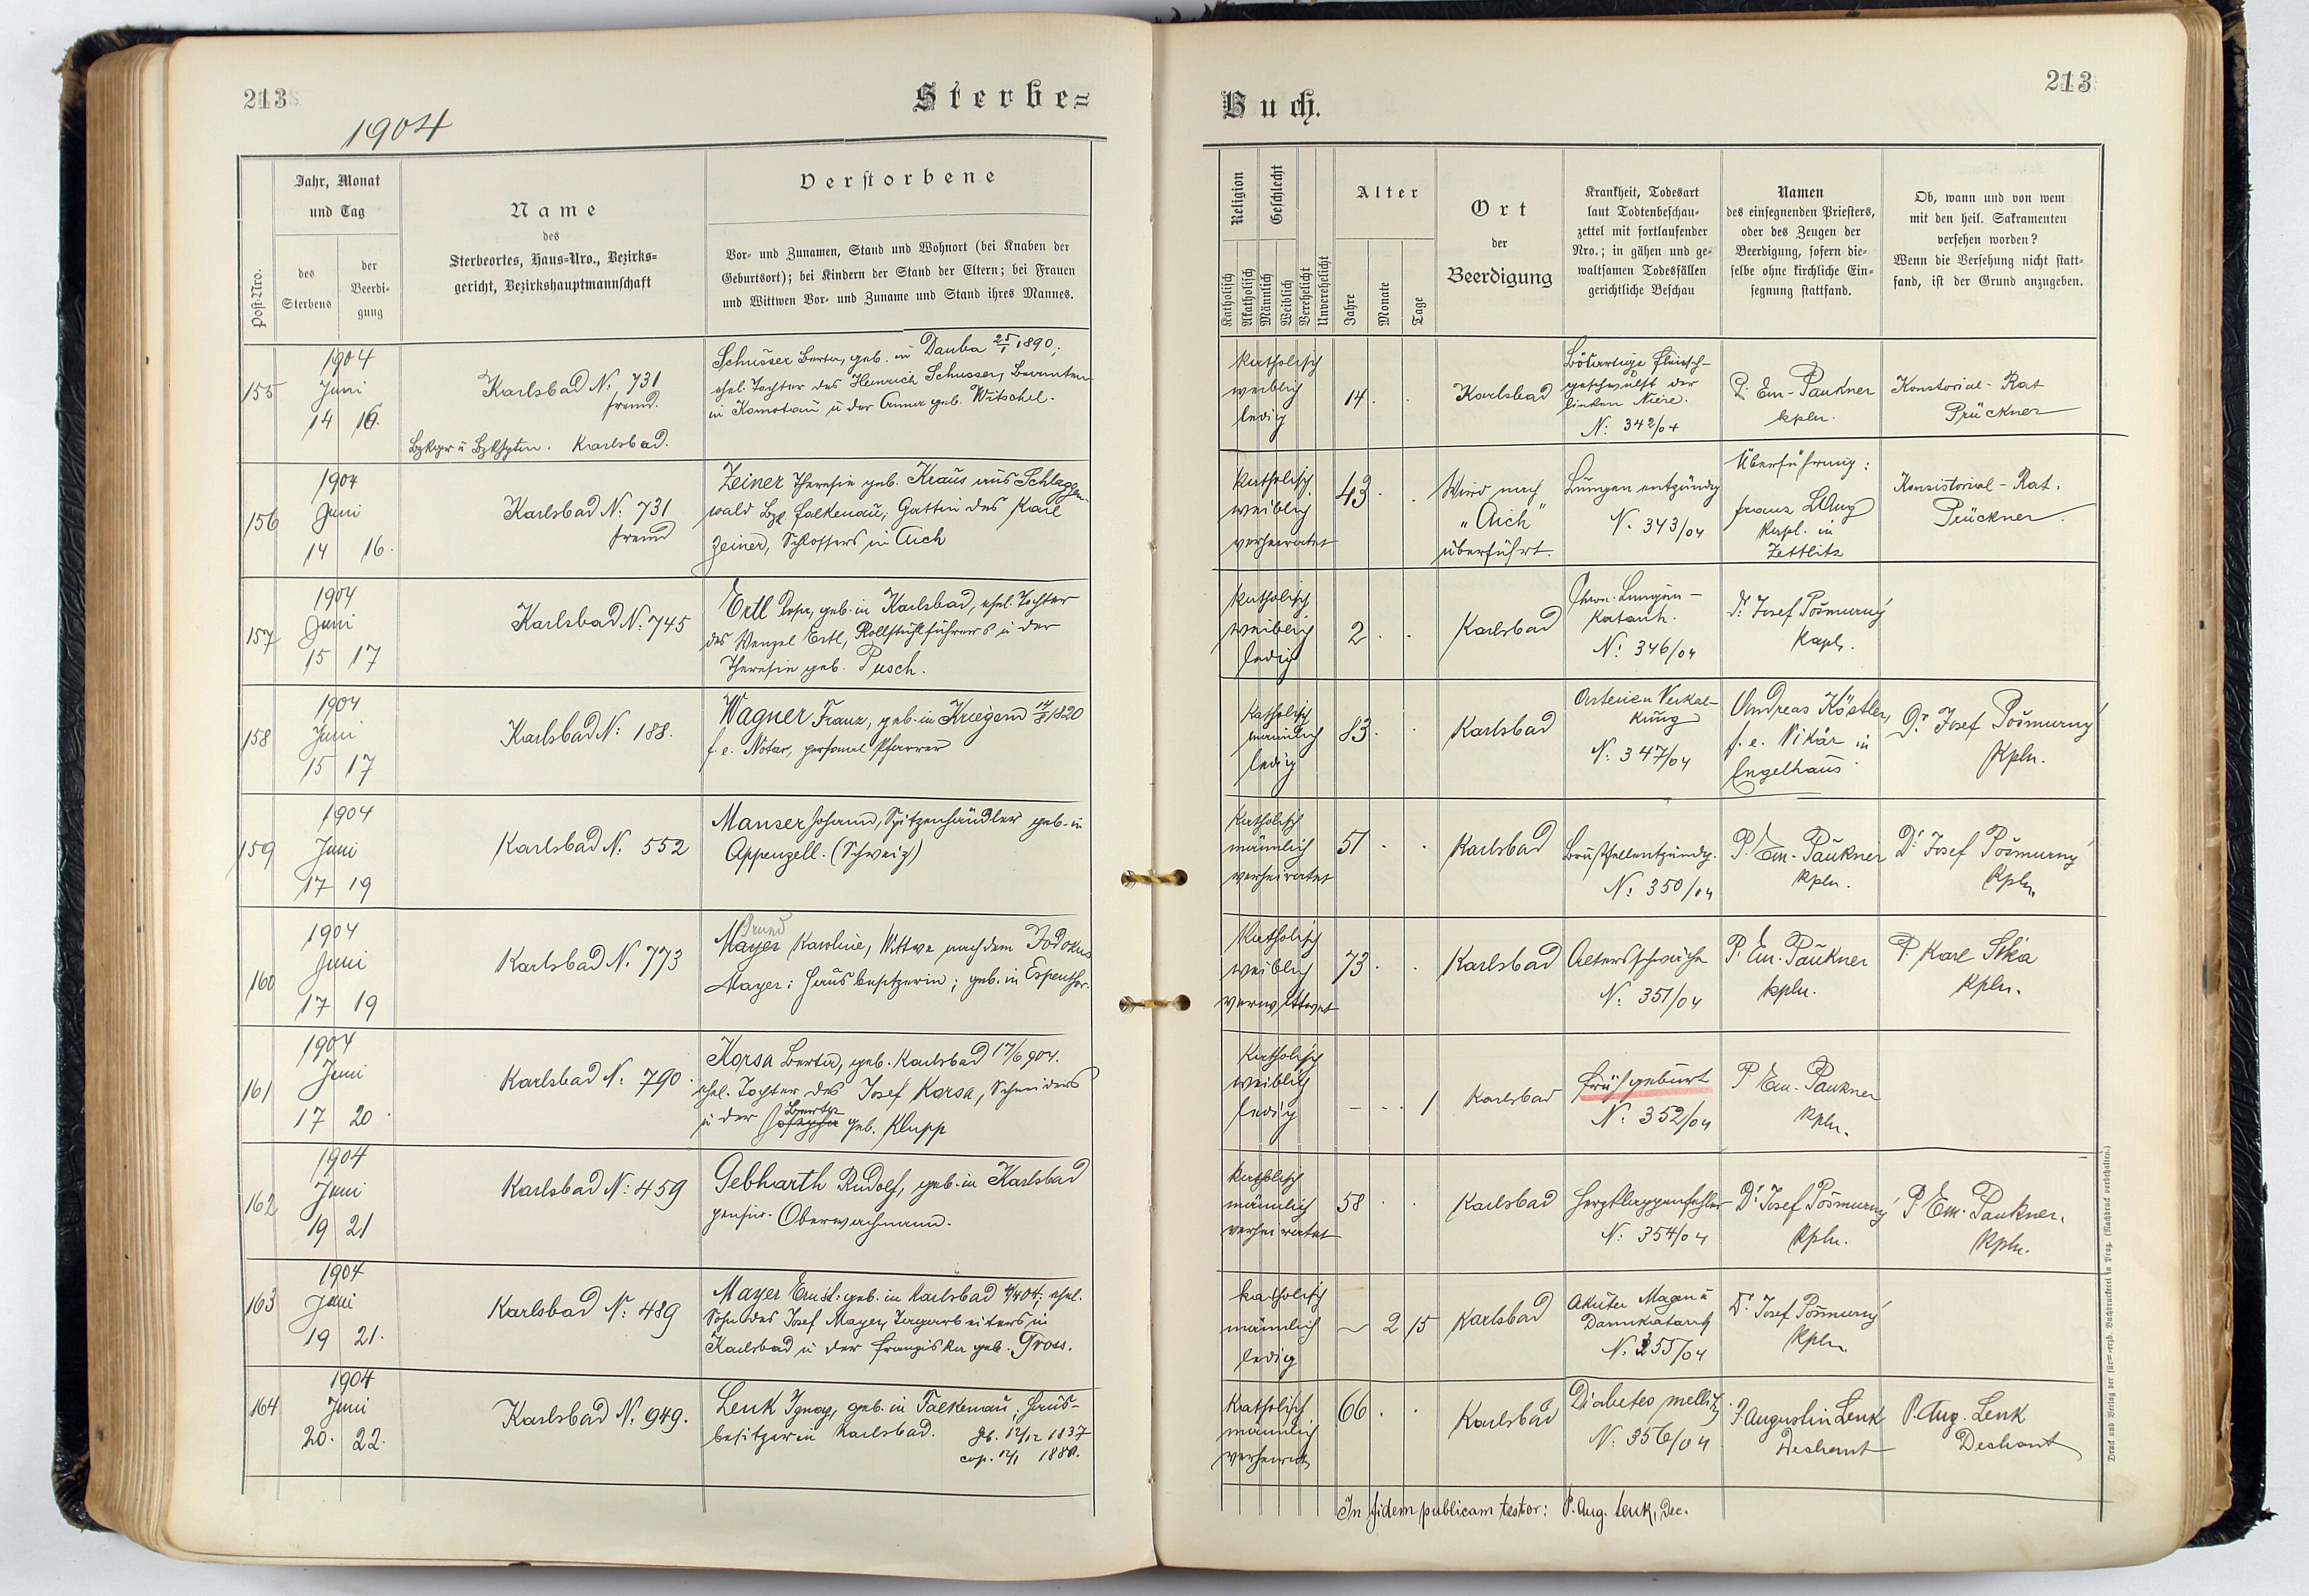 213
Sterbe=
1904
Post-Nro.
Jahr, Monat
und Tag
des
Sterbens
der
Beerdi-
gung
Name
des
Sterbeortes, Haus=Nro., Bezirks=
gericht, Bezirkshauptmannschaft
Verstorbene
Vor- und Zunamen, Stand und Wohnort (bei Knaben der
Geburtsort); bei Kindern der Stand der Eltern; bei Frauen
und Wittwen Vor- und Zuname und Stand ihres Mannes.
155
1904
Juni
14 16.
Karlsbad N: 731
fremd.
Karlsbad.
Schusser Berta, geb. in Dauba 25/1 1890;
ehel. Tochter des Heinrich Schusser, Beamten
in Komotau u der Anna geb. Witschel.
156
1904
Juni
14 16.
Karlsbad N: 731
fremd
Zeiner Theresia geb. Kraus aus Schlaggen-
wald Bz. Falkenau; Gattin des Karl
Zeiner, Schlossers in Aich
157
1904
Juni
15 17
Karlsbad N: 745
Ertl Rosa, geb. in Karlsbad, ehel. Tochter
des Wenzel Ertl, Rollstuhlführers u der
Theresia geb. Pusch.
158
1904
Juni
15 17
Karlsbad N: 188.
Wagner Franz, geb. in Kriegern 1820
f. e. Notar, Pfarrer
159
1904
Juni
17 19
Karlsbad N: 552
Manser Johann, Spitzenhändler geb. in
Appenzell. (Schweiz)
160
1904
Juni
17 19
Karlsbad N. 773
Mayer Karoline, Wittwe nach dem Jodokus
Mayer: Hausbesitzerin; geb. in Espenthor.
161
1904
Juni
17 20.
Karlsbad N: 790.
Korsa Berta, geb. Karlsbad 17/6 904.
ehel. Tochter des Josef Korsa, Schneiders
Berta
u der geb. Klupp
162
1904
Juni
19 21
Karlsbad N: 459
Gebharth Rudolf, geb. in Karlsbad
pens. Oberwachmann.
163
1904
Juni
19 21.
Karlsbad N: 489
Mayer Ernst: geb. in Karlsbad 4/4 04; ehel.
Sohn des Josef Mayer, Tagarbeiters in
Karlsbad u der Franziska geb. Tross.
164
1904
Juni
20. 22.
Karlsbad N. 949.
Lenk Ignaz, geb. in Falkenau; Haus-
besitzer in Karlsbad. gb. 12/12 1837
cop. 1880.
Buch.
213
Religion
Katholisch
Akatholisch
Geschlecht
Männlich
Weiblich
Verehelicht
Unverehelicht
Alter
Jahre
Monate
Tage
Ort
der
Beerdigung
Krankheit, Todesart
laut Todtenbeschau-
zettel mit fortlaufender
Nro.; in gähen und ge-
waltsamen Todesfällen
gerichtliche Beschau
Namen
des einsegnenden Priesters,
oder des Zeugen der
Beerdigung, sofern die-
selbe ohne kirchliche Ein-
segnung stattfand.
Ob, wann und von wem
mit den heil. Sakramenten
versehen worden?
Wenn die Versehung nicht statt-
fand, ist der Grund anzugeben.
Katholisch
weiblich
ledig
14
Karlsbad
Bösartige Fleisch-
geschwulst der
linken Niere.
N: 342/04
P. Em. Paukner
kpln.
Konstorial-Rat
Prückner
Katholisch
weiblich
verheiratet
43
Wird nach
"Aich"
überführt.
Lungenentzündg
N. 343/04
Überführung:
Franz Lang
Kapl. in
Zettlitz
Konsistorial-Rat.
Prückner
Katholisch
weiblich
ledig
2
Karlsbad
Chron. Lungen-
Katarrh.
N: 346/04
Dr. Josef Pošmurný
Kapl.
Katholisch
männlich
ledig
83
Karlsbad
Arterien Verkal-
kung
N: 347/04
Andreas Köstler,
f. e. Vikär in
Engelhaus
Dr. Josef Pošmurný
Kpln.
Katholisch
männlich
verheiratet
51
Karlsbad
Brustfellentzündg.
N: 350/04
P. Em. Paukner
Kpln.
Dr. Josef Pošmurný
Kpln.
Katholisch
weiblich
verwittwet
73
Karlsbad
Altersschwäche
N: 351/04
P. Em. Paukner
kpln.
P. Karl
Kpln.
Katholisch
weiblich
ledig
1
Karlsbad
Frühgeburt
N: 352/04
P. Em. Paukner
Kpln.
Katholisch
männlich
verheiratet
58
Karlsbad
Herzklappenfehler
N: 354/04
Dr. Josef Pošmurný
Kpln.
P. Em. Paukner.
Kpln.
katholisch
männlich
ledig
2 15
Karlsbad
Akuter Magen u
Darmkatarrh
N. 355/04
Dr. Josef Pošmurný
Kpln.
Katholisch
männlich
verheirat.
66
Karlsbad
Diabetes mellit.
N: 356/04
P. Augustin Lenk
Dechant
P. Aug. Lenk
Dechant
In fidem publicam testor: P. Aug. Lenk, Dec.
Druck und Verlag der fürst=erzb. Buchdruckerei in Prag. (Nachdruck vorbehalten.)